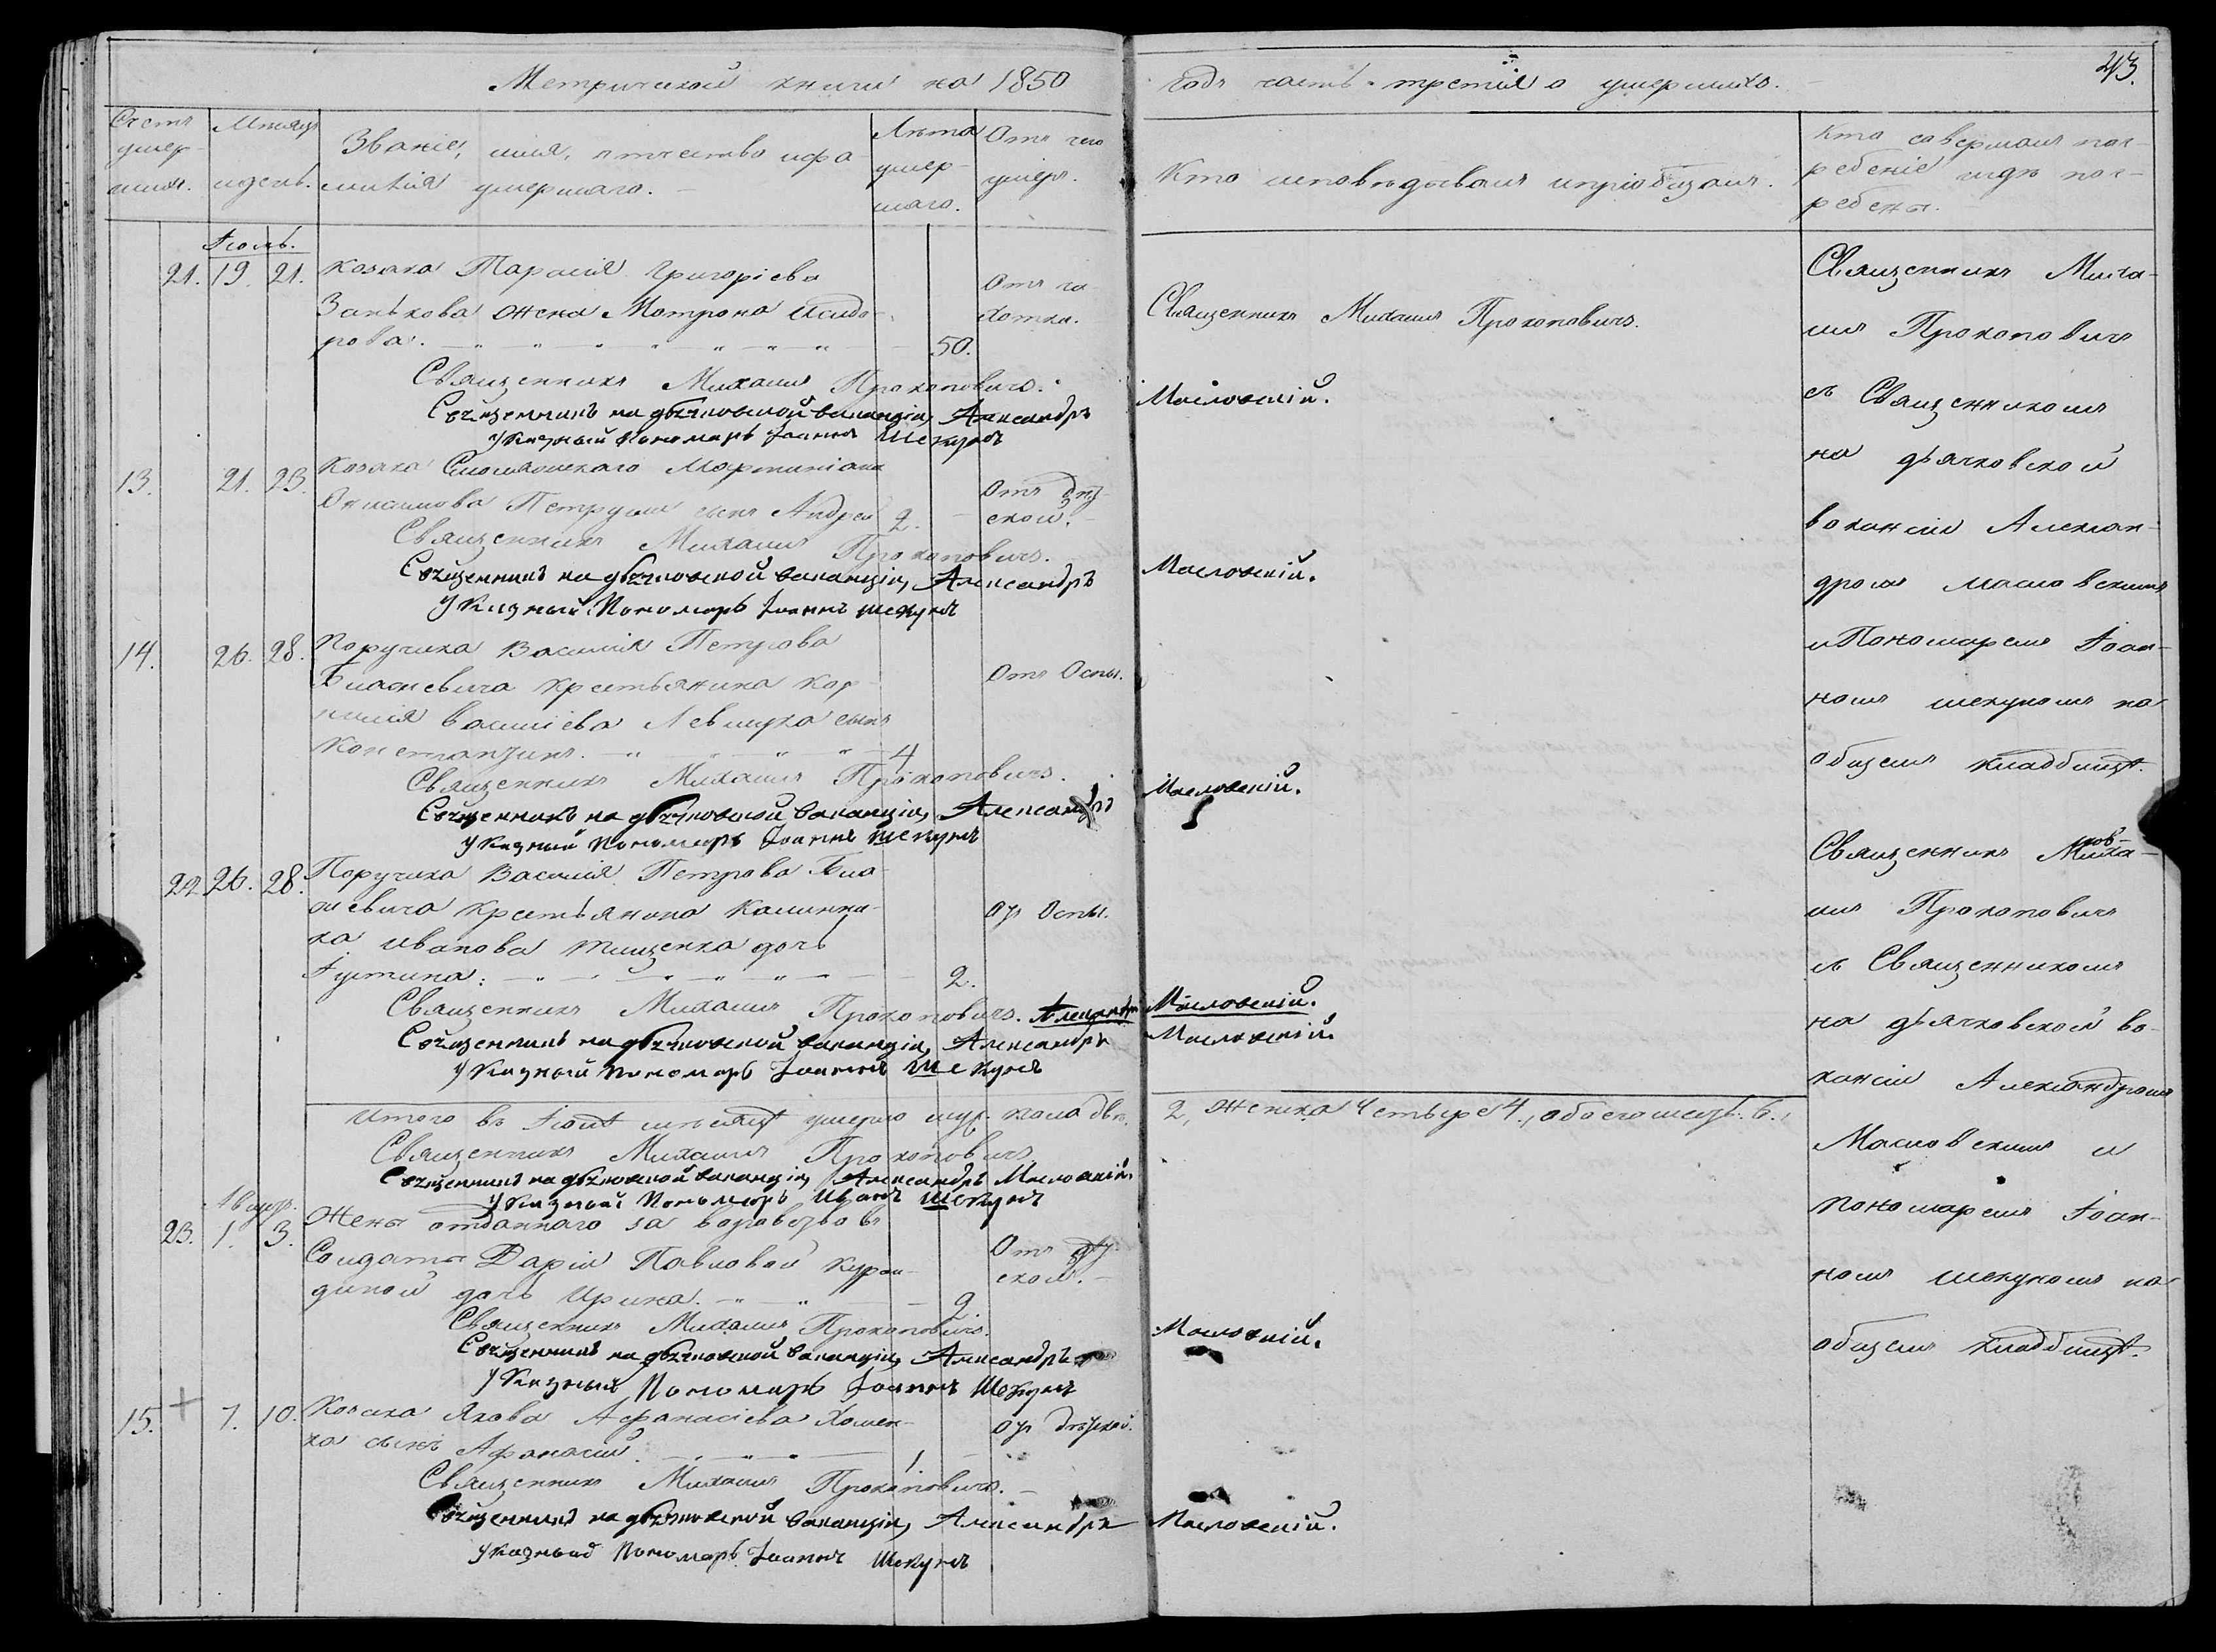 Метрической книги на 1850
года часть третия о умершихъ.
43.
Счетъ умер-шихъ.
Мѣсяцъ и день.
Званіе, имя, отчество и фа-
милія умершаго.
Лѣта умер-шаго.
Отъ чего умеръ.
Кто исповѣдывалъ и пріобщалъ.
Кто совершалъ пог-
ребеніе и гдѣ пог-
ребены.
Іюль.
21. 19. 21. Козака Тарасія Григоріева
Занькова жена Мотрона Исидо-
рова. 50.
Отъ чахотки.
Священникъ Михаилъ Прокоповичъ.
Священникъ Михаилъ Прокоповичъ.
Священникъ на дьячковской ваканціи, Александръ Масловскій.
Указный Пономарь Іоаннъ Шекунъ
13. 21. 23. Козака Мартиніана
Онисимова сынъ Андрей 2.
Священникъ Михаилъ Прокоповичъ.
Священникъ на дьячковской ваканціи, Александръ Масловскій.
Указный Пономарь Іоаннъ Шекунъ
14. 26. 28. Поручика Василія Петрова
крестьянина Кор-
нилія Василіева Левшука сынъ
Константинъ. 4
Отъ Оспы.
Священникъ Михаилъ Прокоповичъ.
Священникъ на дьячковской ваканціи, Александръ Масловскій.
Указный Пономарь Іоаннъ Шекунъ
22. 26. 28. Поручика Василія Петрова
крестьянина Калинни-
ка Иванова Тищенка дочь
Іустина: 2.
Отъ Оспы.
Священникъ Михаилъ Прокоповичъ. Александръ Масловскій.
Священникъ на дьячковской ваканціи, Александръ Масловскій.
Указный Пономарь Іоаннъ Шекунъ
Итого въ Іюлѣ мѣсяцѣ умерло муж. пола два 2, женска четыре 4., обоего
Священникъ Михаилъ Прокоповичъ
Священникъ на дьячковской ваканціи, Александръ Масловскій.
Указный Пономарь Иванъ Шекунъ
Август.
23. 1. 3. Жены отданнаго за воровство въ
Солдаты Даріи Павловой
дочь Ирина. 2.
Священникъ Михаилъ Прокоповичъ.
Священникъ на дьячковской ваканціи, Александръ Масловскій.
Указный Пономарь Іоаннъ Шекунъ
15. 7. 10. Козака Якова Афанасіева Хомен-
ка сынъ Афанасій. 1
Отъ дѣтской.
Священникъ Михаилъ Прокоповичъ.
Священникъ на дьячковской ваканціи, Александръ Масловскій.
Указный Пономарь Іоаннъ Шекунъ
Священникъ Миха-
илъ Прокоповичъ
съ Священникомъ
на дьячковской
ваканціи Алексан-
дромъ Масловскимъ
и Пономаремъ Іоан-
номъ Шекуномъ на
общемъ кладбищѣ.
Священникъ Миха-
илъ Прокоповичъ
съ Священникомъ
на дьячковской ва-
канціи Александромъ
Масловскимъ и
Пономаремъ Іоан-
номъ Шекуномъ на
общемъ кладбищѣ.